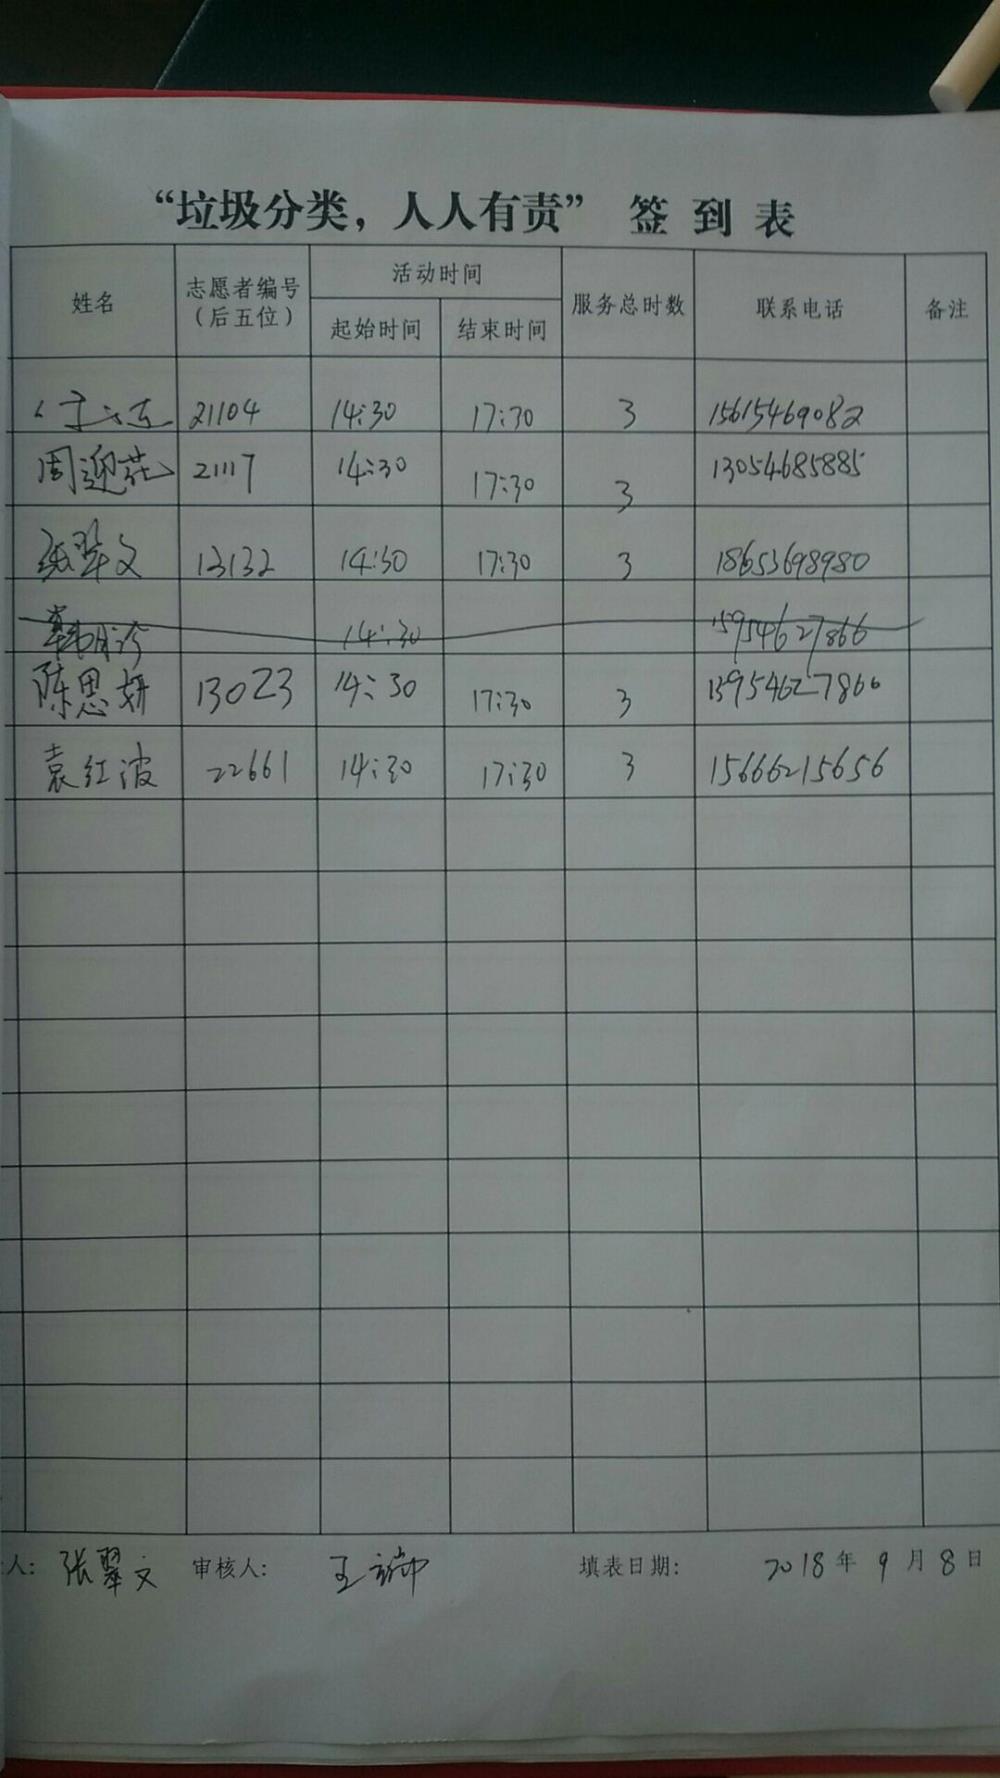 “垃圾分类，人人有责” 签到表
姓名 志愿者编号（后五位） 活动时间 服务总时数 联系电话 备注
起始时间 结束时间
21104 14:30 17:30 3 15615469082
周迎花 21117 14:30 17:30 3 13054685885
张翠文 13132 14:30 17:30 3 18653698980
14:30 15954627866
陈思妍 13023 14:30 17:30 3 15954627866
袁红波 22661 14:30 17:30 3 15666215656
人: 张翠文 审核人: 王瑞 填表日期: 2018年9月8日